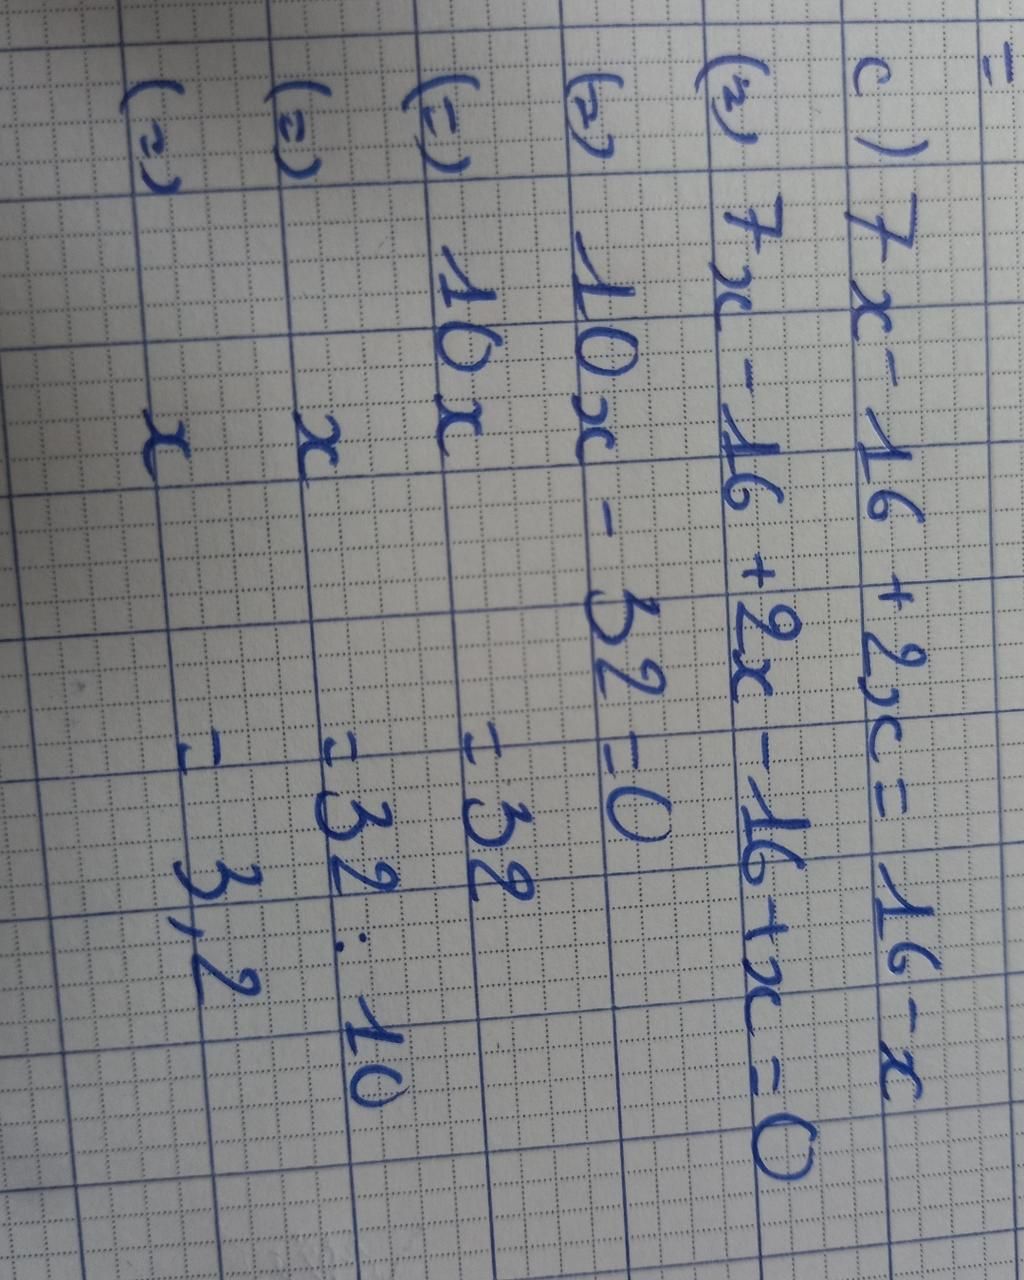 c) 7x - 16 + 2x = 16 - x
(=) 7x - 16 + 2x - 16 + x = 0
(=) 10x - 32 = 0
(=) 10x = 32
(=) x = 32 : 10
(=) x = 3,2